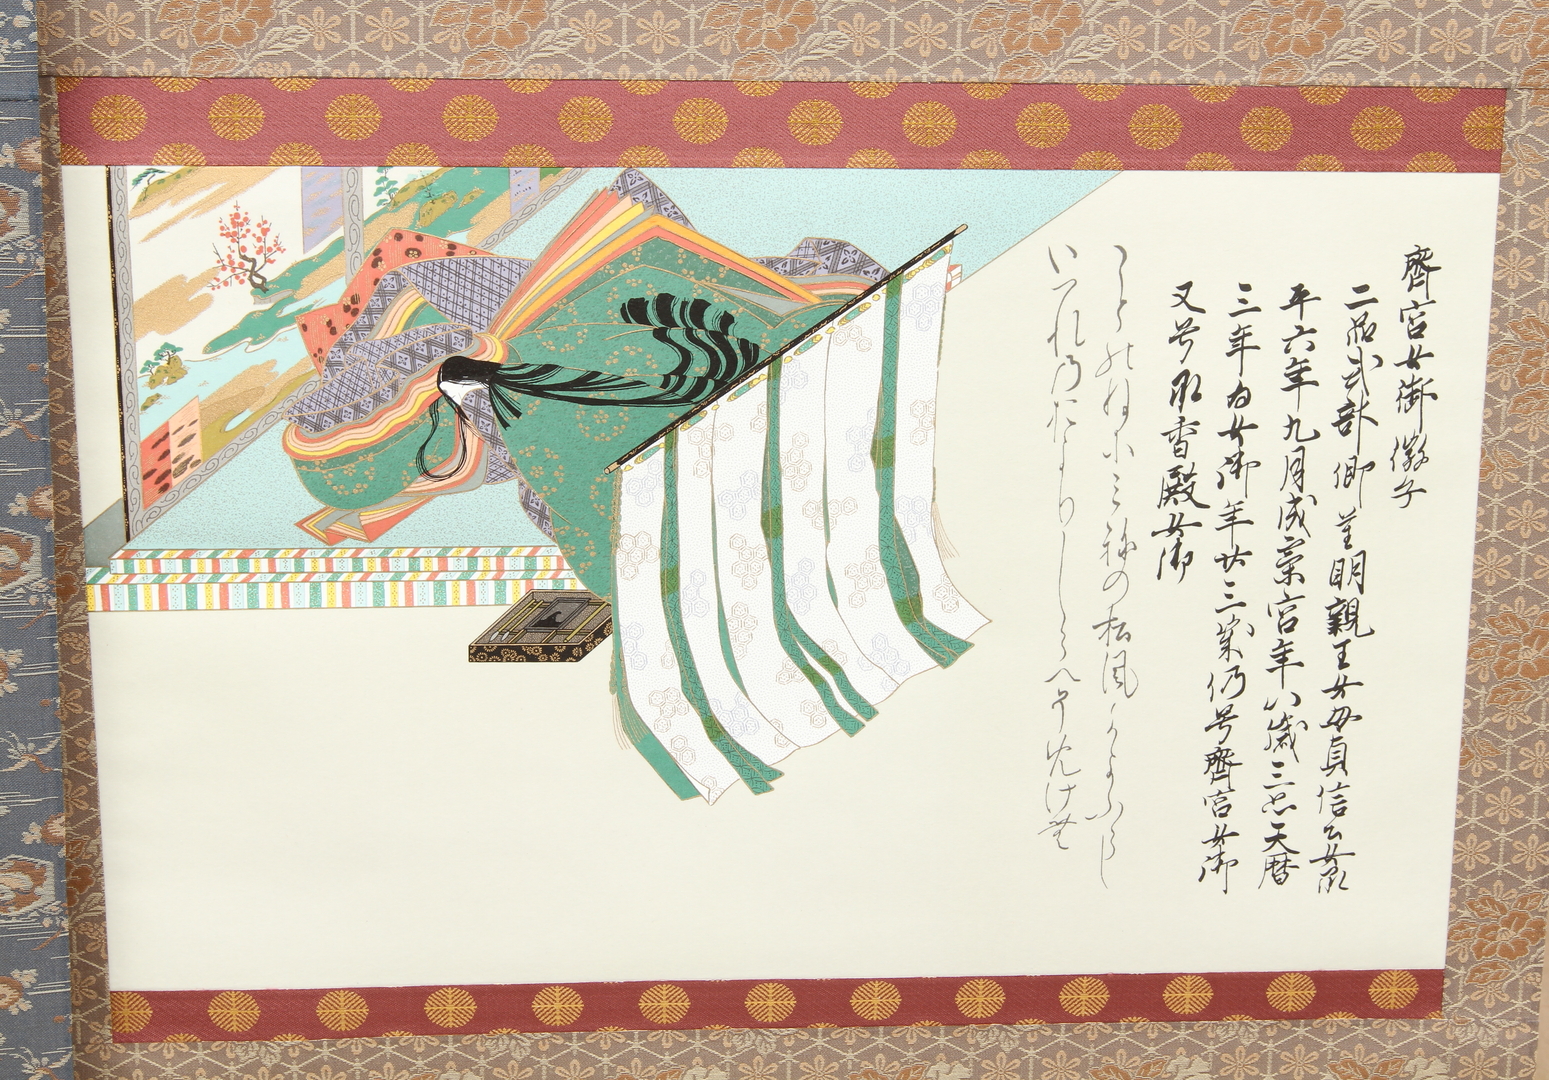 齊宮女御 徽子
二品式部卿重明親王女母貞信公女承
平六年九月為齋宮年八歳三品天暦
三年為女御年廿三歳仍号齊宮女御
又号承香殿女御
ことのねにみねの松風かよふらし
いつれのおよりしらへそめけむ